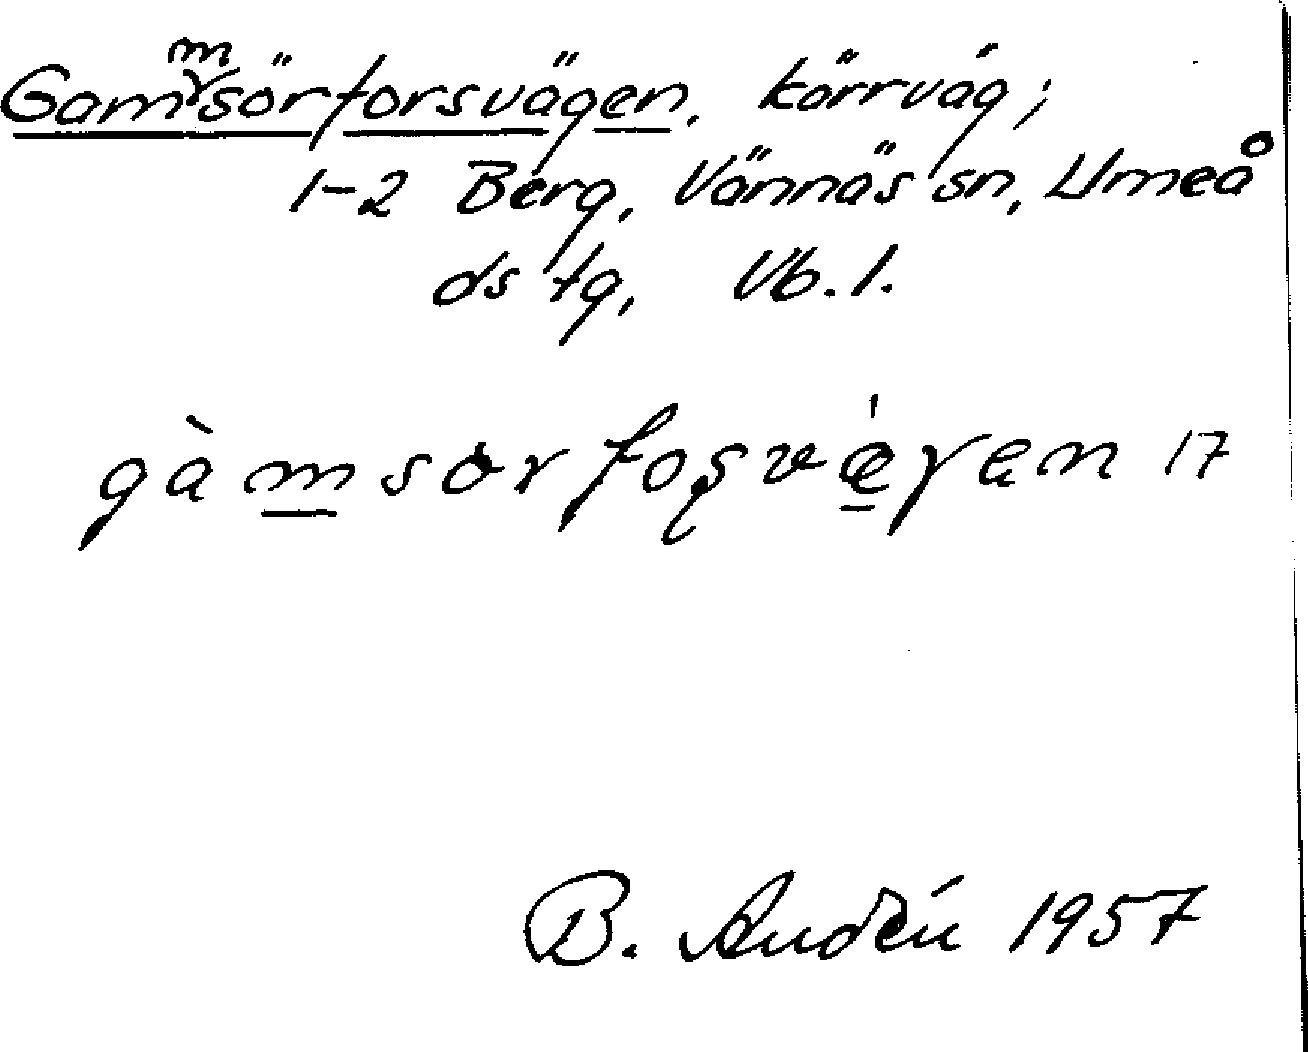 Gammsörforsvägen, körrväg;
1-2 Berg, Vännäs sn, Umeå
ds tg, Vb. l.
gàmsorfoʂvægen 17
B. Audén 1957